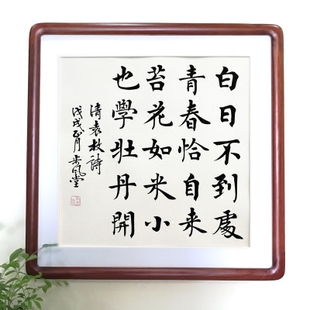 白日不到處
青春恰自来
苔花如米小
也學牡丹開
清袁枚詩
戊戌正月